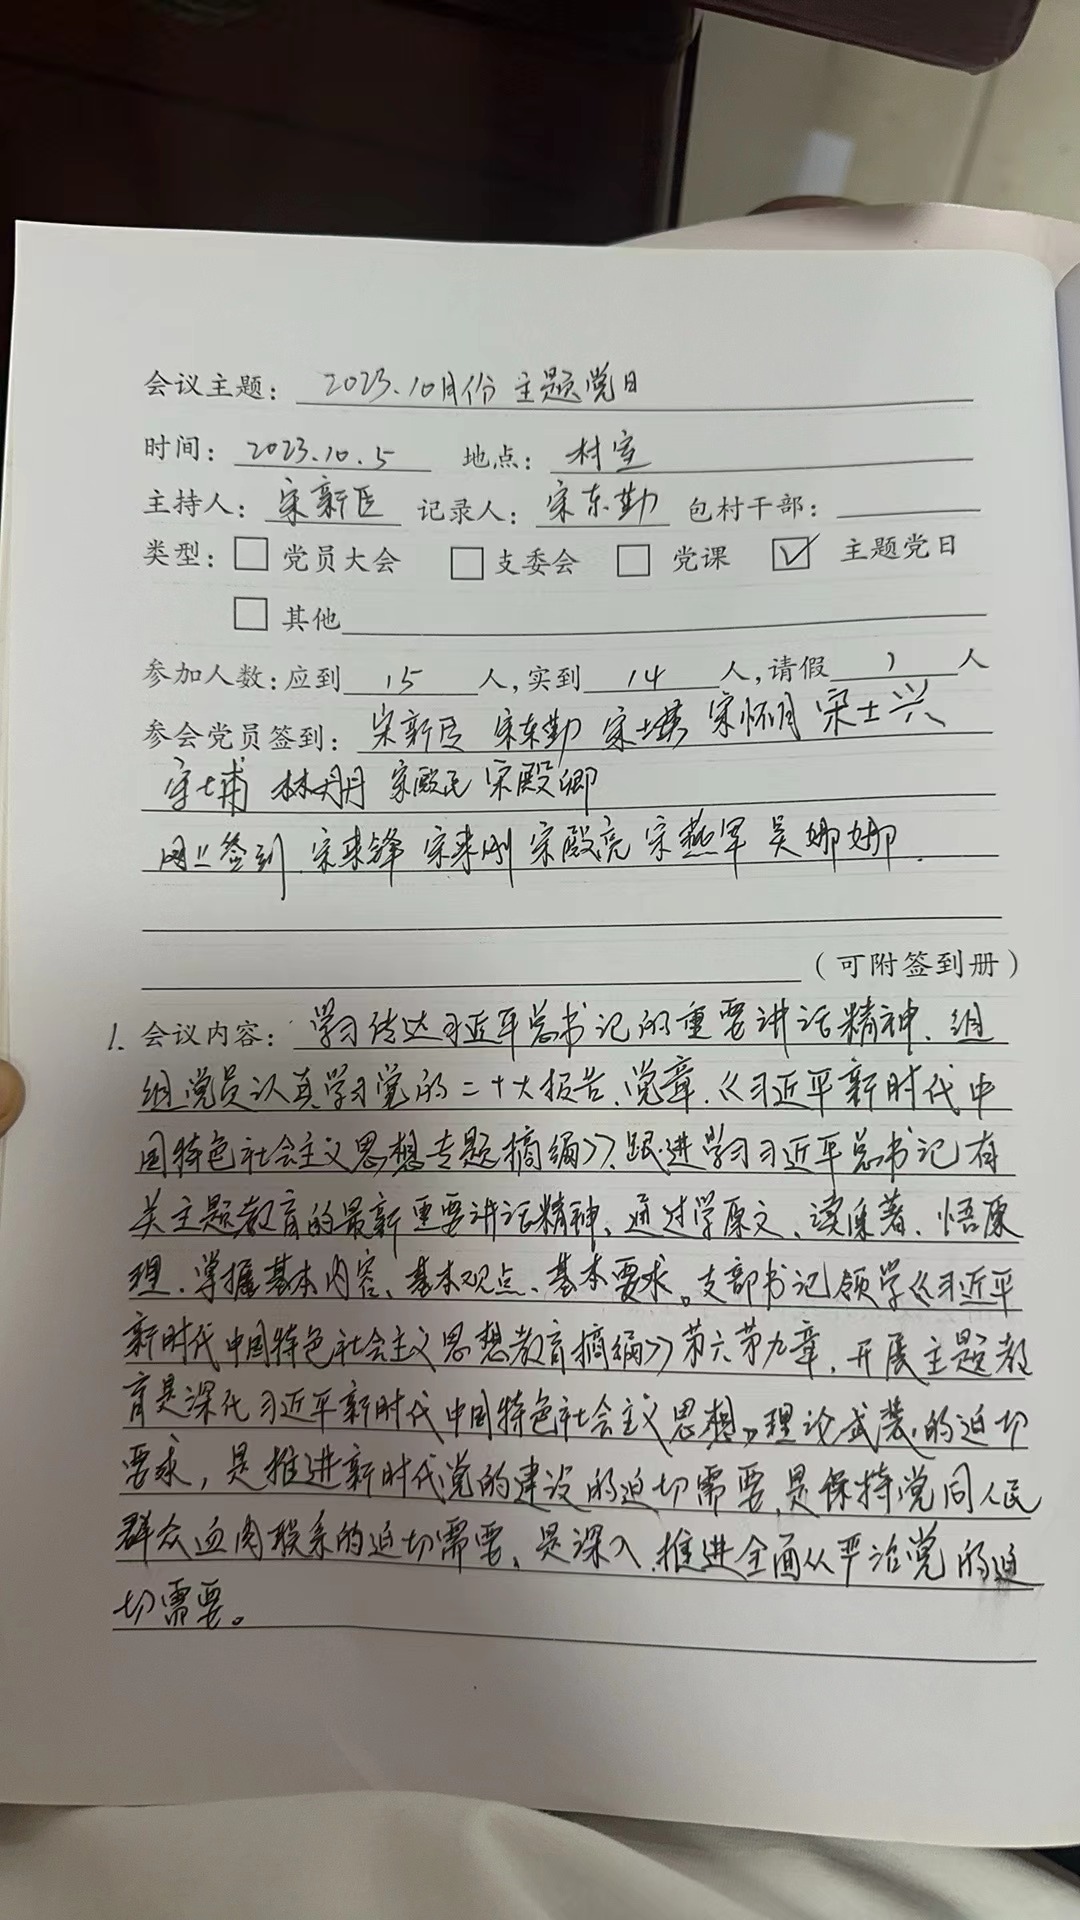 会议主题：2023.10月份主题党日
时间：2023.10.5 地点：村室
主持人：宋新臣 记录人：宋东勤 包村干部：
类型：党员大会 支委会 党课 ☑ 主题党日
其他
参加人数：应到 15 人，实到 14 人，请假 1 人
参会党员签到：宋新臣 宋东勤 宋士 宋怀月 宋士兴
林明月 宋殿民 宋殿卿
网上签到.宋来锋 宋来刚 宋殿亮 宋燕军 吴娜娜.
（可附签到册）
1. 会议内容：学习传达习近平总书记的重要讲话精神、组
组党员认真学习党的二十大报告、党章、《习近平新时代中
国特色社会主义思想专题摘编》、跟进学习习近平总书记有
关主题教育的最新重要讲话精神、通过学原文、读原著、悟原
理、掌握基本内容、基本观点、基本要求。支部书记领学《习近平
新时代中国特色社会主义思想教育摘编》第六第九章，开展主题教
育是深化习近平新时代中国特色社会主义思想，理论武装的迫切
要求，是推进新时代党的建设的迫切需要、是保持党同人民
群众血肉联系的迫切需要、是深入推进全面从严治党的迫
切需要。